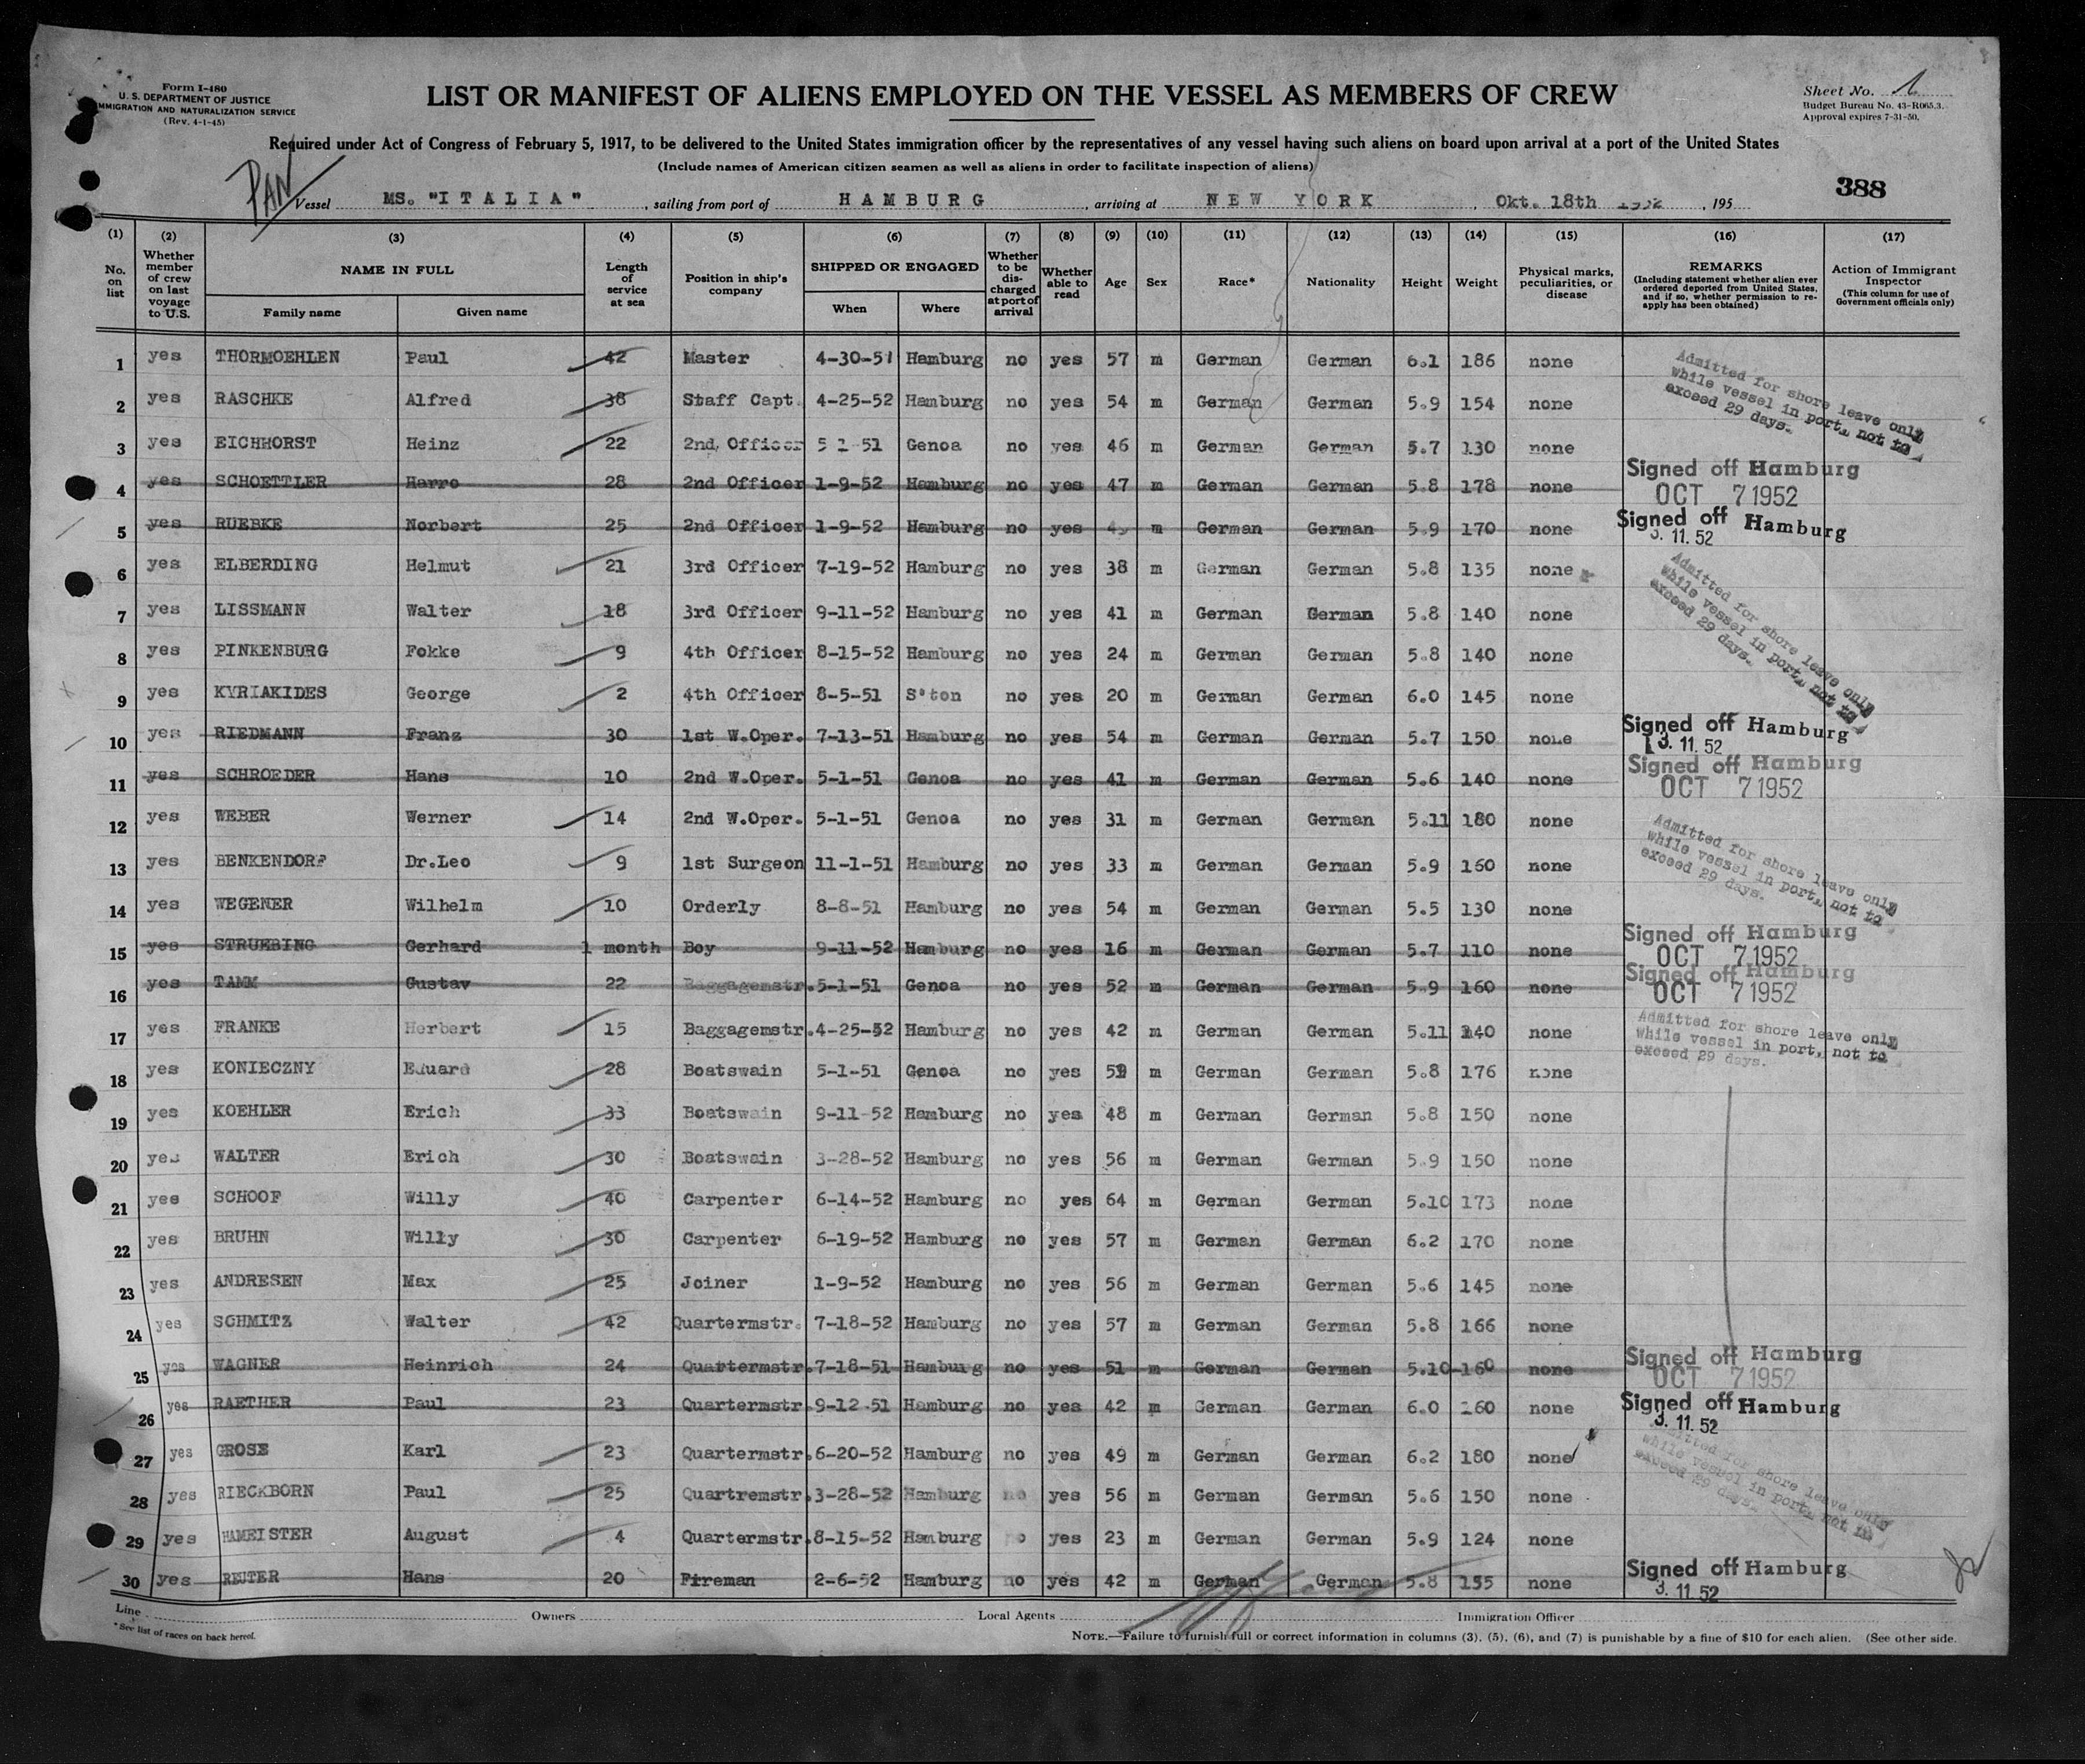 Form I-480
U. S. DEPARTMENT OF JUSTICE
IMMIGRATION AND NATURALIZATION SERVICE
(Rev. 4-1-45)
LIST OR MANIFEST OF ALIENS EMPLOYED ON THE VESSEL AS MEMBERS OF CREW
Sheet No. 1
Budget Bureau No. 43-R065.3.
Approval expires 7-31-50.
Required under Act of Congress of February 5, 1917, to be delivered to the United States immigration officer by the representatives of any vessel having such aliens on board upon arrival at a port of the United States
(Include names of American citizen seamen as well as aliens in order to facilitate inspection of aliens)
PAN
388
Vessel MS. "ITALIA", sailing from port of HAMBURG, arriving at NEW YORK, Okt. 18th 1952, 195
(1) (2) (3) (4) (5) (6) (7) (8) (9) (10) (11) (12) (13) (14) (15) (16) (17)
No. on list
Whether member of crew on last voyage to U.S.
NAME IN FULL
Family name Given name
Length of service at sea
Position in ship's company
SHIPPED OR ENGAGED
When Where
Whether to be discharged at port of arrival
Whether able to read
Age Sex Race* Nationality Height Weight
Physical marks, peculiarities, or disease
REMARKS
(Including statement whether alien ever ordered deported from United States, and if so, whether permission to reapply has been obtained)
Action of Immigrant Inspector
(This column for use of Government officials only)
1 yes THORMOEHLEN Paul 42 Master 4-30-51 Hamburg no yes 57 m German German 6.1 186 none
Admitted for shore leave only
while vessel in port, not to
exceed 29 days.
2 yes RASCHKE Alfred 38 Staff Capt. 4-25-52 Hamburg no yes 54 m German German 5.9 154 none
3 yes EICHHORST Heinz 22 2nd Officer 5 1-51 Genoa no yes 46 m German German 5.7 130 none
4 yes SCHOETTLER Harro 28 2nd Officer 1-9-52 Hamburg no yes 47 m German German 5.8 178 none Signed off Hamburg
OCT 7 1952
5 yes RUEBKE Norbert 25 2nd Officer 1-9-52 Hamburg no yes m German German 5.9 170 none Signed off Hamburg
3. 11. 52
6 yes ELBERDING Helmut 21 3rd Officer 7-19-52 Hamburg no yes 38 m German German 5.8 135 none
Admitted for shore leave only
while vessel in port, not to
exceed 29 days.
7 yes LISSMANN Walter 18 3rd Officer 9-11-52 Hamburg no yes 41 m German German 5.8 140 none
8 yes PINKENBURG Fokke 9 4th Officer 8-15-52 Hamburg no yes 24 m German German 5.8 140 none
9 yes KYRIAKIDES George 2 4th Officer 8-5-51 S'ton no yes 20 m German German 6.0 145 none
10 yes RIEDMANN Franz 30 1st W.Oper. 7-13-51 Hamburg no yes 54 m German German 5.7 150 none Signed off Hamburg
3. 11. 52
11 yes SCHROEDER Hans 10 2nd W.Oper. 5-1-51 Genoa no yes 41 m German German 5.6 140 none Signed off Hamburg
OCT 7 1952
12 yes WEBER Werner 14 2nd W.Oper. 5-1-51 Genoa no yes 31 m German German 5.11 180 none
Admitted for shore leave only
while vessel in port, not to
exceed 29 days.
13 yes BENKENDORF Dr.Leo 9 1st Surgeon 11-1-51 Hamburg no yes 33 m German German 5.9 160 none
14 yes WEGENER Wilhelm 10 Orderly 8-8-51 Hamburg no yes 54 m German German 5.5 130 none
15 yes STRUEBING Gerhard 1 month Boy 9-11-52 Hamburg no yes 16 m German German 5.7 110 none Signed off Hamburg
OCT 7 1952
16 yes TAMM Gustav 22 Baggagemstr. 5-1-51 Genoa no yes 52 m German German 5.9 160 none Signed off Hamburg
OCT 7 1952
17 yes FRANKE Herbert 15 Baggagemstr. 4-25-52 Hamburg no yes 42 m German German 5.11 140 none
Admitted for shore leave only
while vessel in port, not to
exceed 29 days.
18 yes KONIECZNY Eduard 28 Boatswain 5-1-51 Genoa no yes m German German 5.8 176 none
19 yes KOEHLER Erich 33 Boatswain 9-11-52 Hamburg no yes 48 m German German 5.8 150 none
20 yes WALTER Erich 30 Boatswain 3-28-52 Hamburg no yes 56 m German German 5.9 150 none
21 yes SCHOOF Willy 40 Carpenter 6-14-52 Hamburg no yes 64 m German German 5.10 173 none
22 yes BRUHN Willy 30 Carpenter 6-19-52 Hamburg no yes 57 m German German 6.2 170 none
23 yes ANDRESEN Max 25 Joiner 1-9-52 Hamburg no yes 56 m German German 5.6 145 none
24 yes SCHMITZ Walter 42 Quartermstr. 7-18-52 Hamburg no yes 57 m German German 5.8 166 none
25 yes WAGNER Heinrich 24 Quartermstr. 7-18-51 Hamburg no yes 51 m German German 5.10 160 none Signed off Hamburg
OCT 7 1952
26 yes RAETHER Paul 23 Quartermstr. 9-12 51 Hamburg no yes 42 m German German 6.0 160 none Signed off Hamburg
3. 11. 52
27 yes GROSE Karl 23 Quartermstr. 6-20-52 Hamburg no yes 49 m German German 6.2 180 none
Admitted for shore leave only
while vessel in port, not to
exceed 29 days.
28 yes RIECKBORN Paul 25 Quartremstr. 3-28-52 Hamburg no yes 56 m German German 5.6 150 none
29 yes HAMEISTER August 4 Quartermstr. 8-15-52 Hamburg no yes 23 m German German 5.9 124 none
30 yes REUTER Hans 20 Fireman 2-6-52 Hamburg no yes 42 m German German 5.8 155 none Signed off Hamburg
3. 11. 52
Line Owners Local Agents Immigration Officer
*See list of races on back hereof.
NOTE.—Failure to furnish full or correct information in columns (3), (5), (6), and (7) is punishable by a fine of $10 for each alien. (See other side.